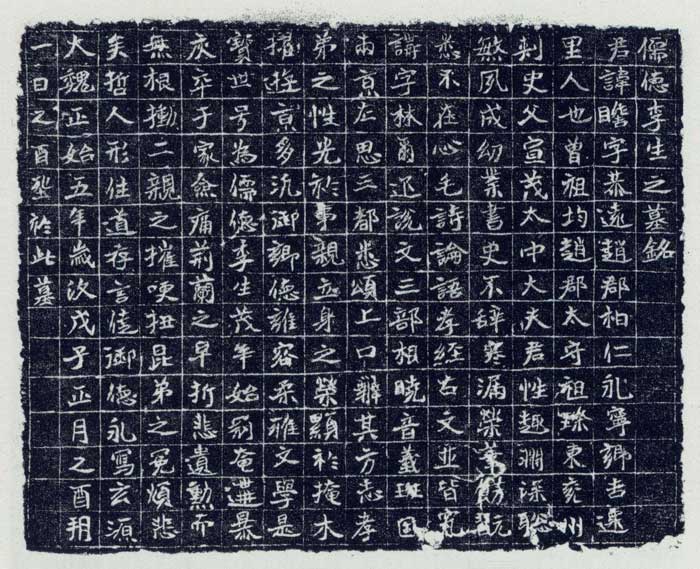 儒德李生之墓銘
君諱瞻字恭遠趙郡柏仁永寧鄉吉遷
里人也曾祖均趙郡太守祖璨東兗州
刾史父宣茂太中大夫君性趣淵深聡
敏夙成幼業書史不辞寒漏榮華玩
悉不在心毛詩論語孝経古文並皆究
講字林爾迩說文三部相曉音義班固
兩京左思三都悉頌上口辭其方志孝
弟之性光於事親立身之榮顯於掩木
擢遊京多德誰容柔雅文學是
寳世号為儒德李生茂年始奄遘暴
灰卒于家僉痛荊蘭之早折悲遺勲而
無根慟二親之摧哽昆弟之冤煩悲
矣哲人形住道存言德永寫玄源
大魏正始五年歲次戊子正月之酉朔
一日之酉塟於此墓